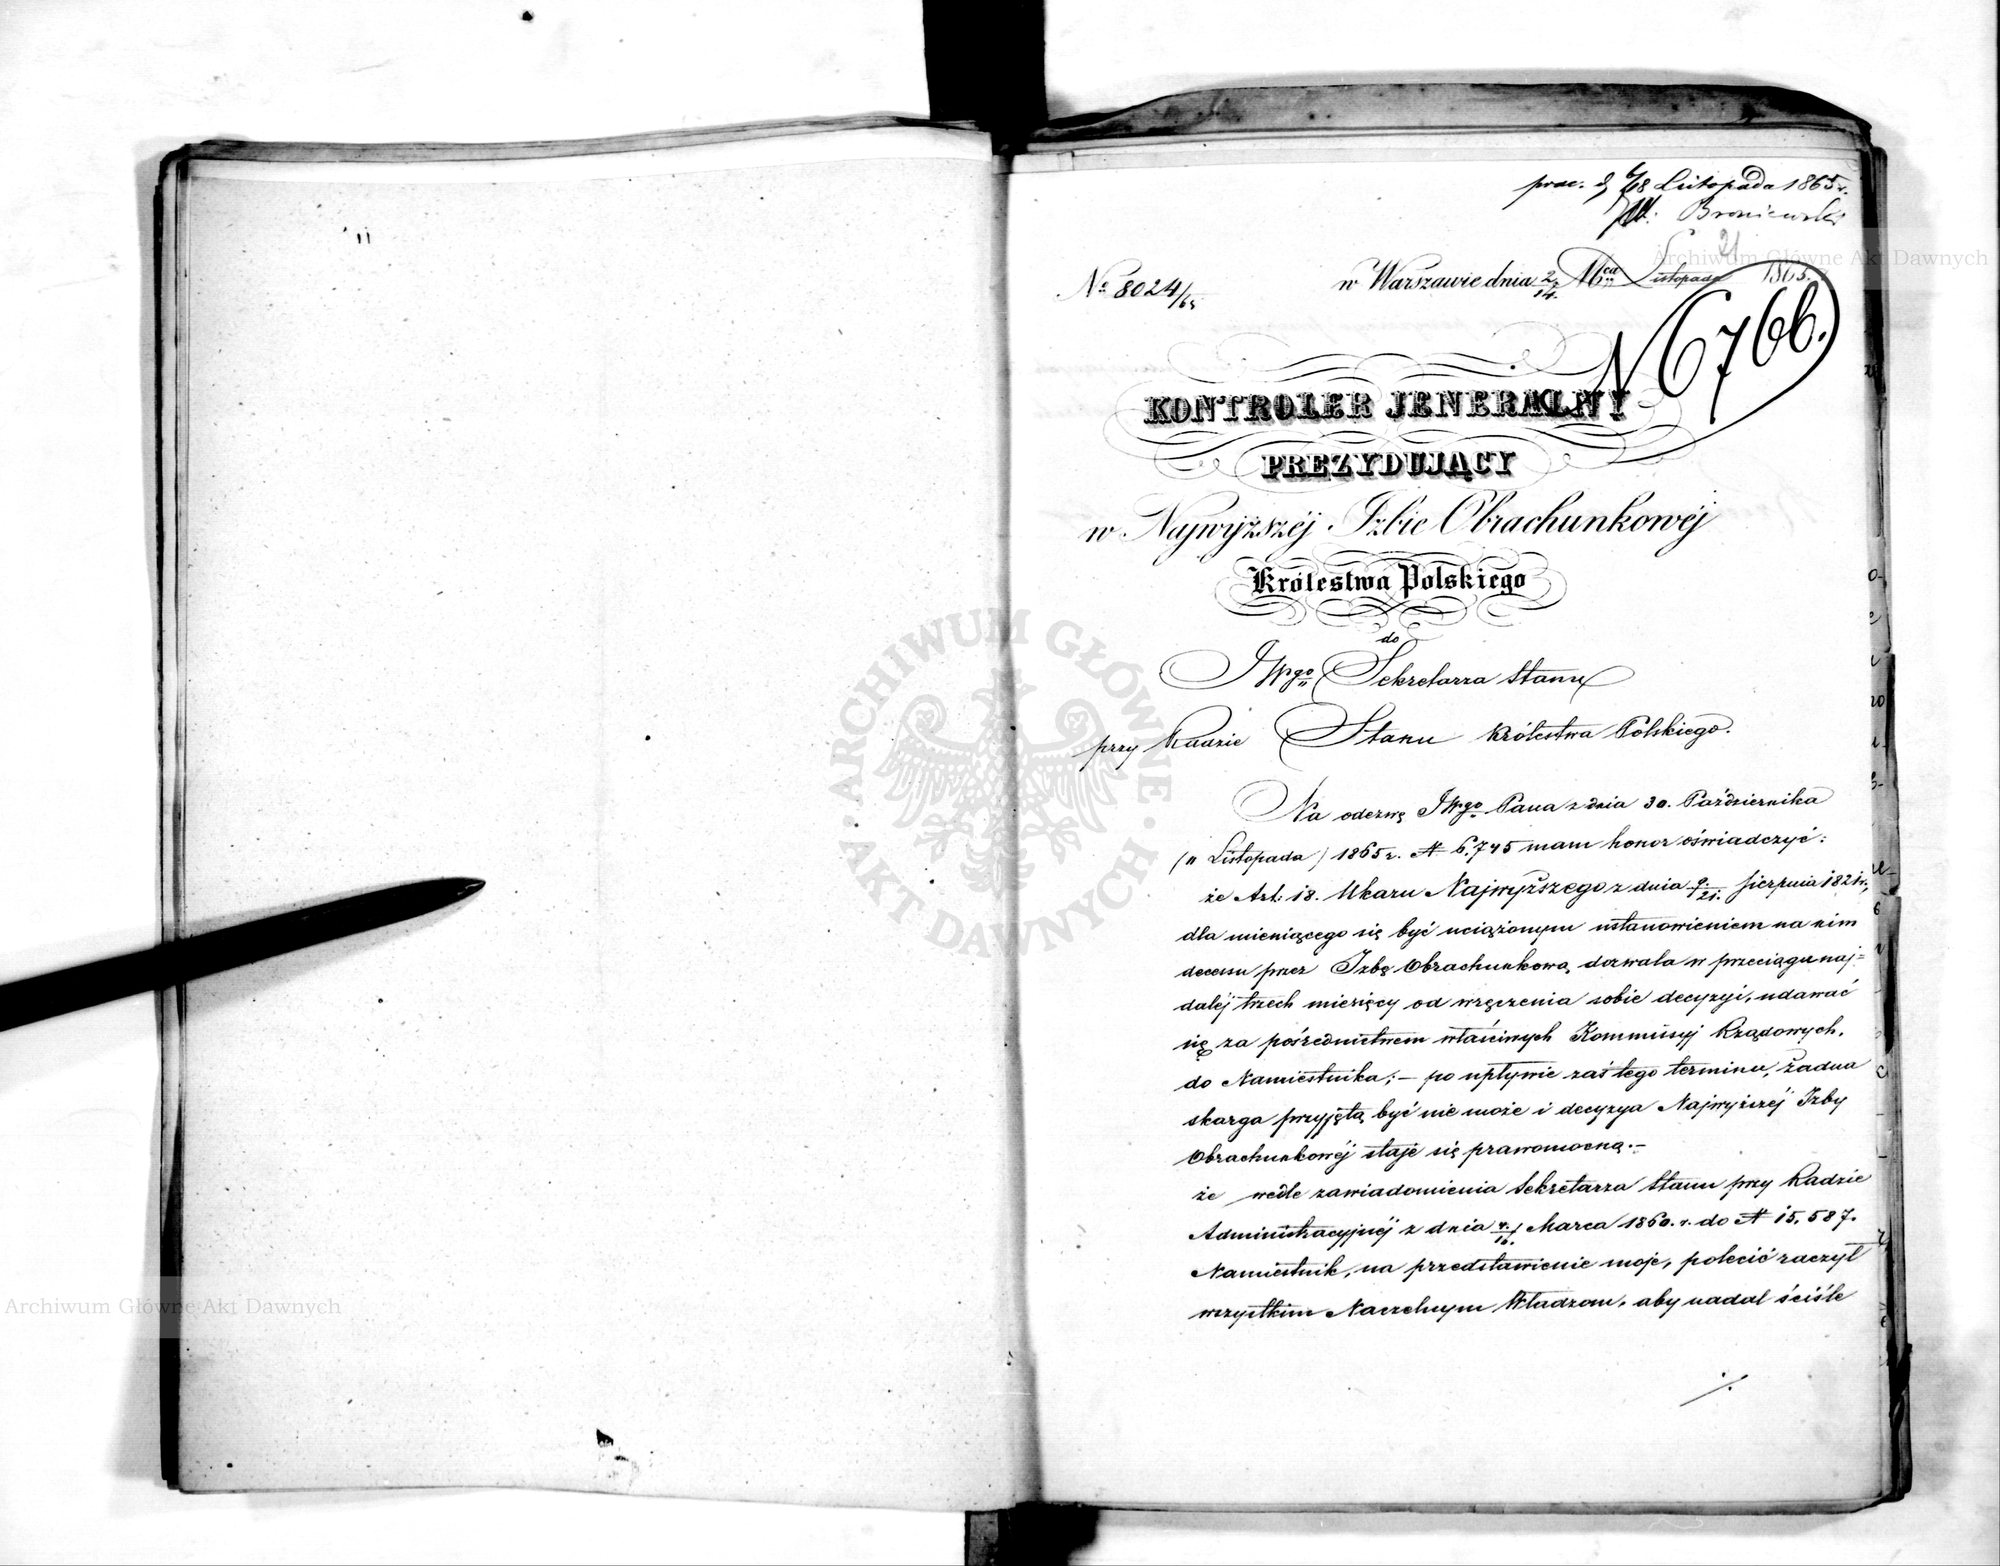 prae. d 6/18 Listopada 1865 r.
Broniewski
21
Nº 8024/65
w Warszawie dnia 2/14. Mca Listopada 1865.
N 6766.
KONTROLER JENERALNY
PREZYDUJĄCY
w Najwyższéj Izbie Obrachunkowéj
Królestwa Polskiego
do
JWgo Sekretarza Stanu
przy Radzie Stanu Królestwa Polskiego.
Na odezwę JWgo Pana z dnia 30. Października
(11 Listopada) 1865 r. N 6.745 mam honor oświadczyć:
że Art: 18. Ukazu Najwyższego z dnia 9/21. Sierpnia 1821 r.,
dla mieniącego się być uciążonym ustanowieniem na nim
decessu przez Izbę Obrachunkową, dozwala w przeciągu naj=
daléj trzech miesięcy od wręczenia sobie decyzyi, udawać
się za pośrednictwem właściwych Kommissyj Rządowych,
do Namiestnika; – po upływie zaś tego terminu, żadna
skarga przyjętą być nie może i decyzya Najwyższéj Izby
Obrachunkowéj staje się prawomocną. –
że wedle zawiadomienia Sekretarza Stanu przy Radzie
Administracyjnéj z dnia 4/16. Marca 1860. r. do N 15,587.
Namiestnik, na przedstawienie moje, polecić raczył
wszystkim Naczelnym Władzom, aby nadal ściśle
./.
ARCHIWUM GŁÓWNE
AKT DAWNYCH
Archiwum Główne Akt Dawnych
Archiwum Główne Akt Dawnych